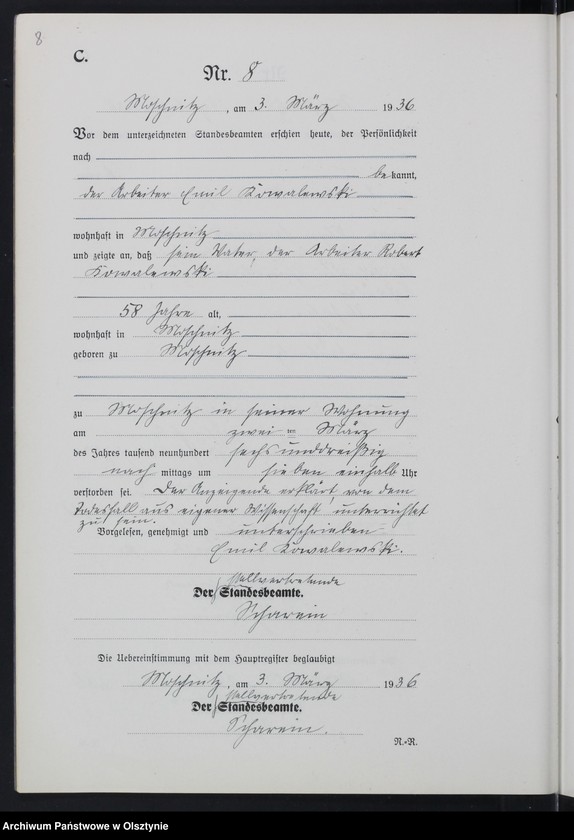 8
C.
Nr. 8
Moschnitz, am 3. März 1936
Vor dem unterzeichneten Standesbeamten erschien heute, der Persönlichkeit
nach
bekannt,
der Arbeiter Emil Kowalewski
wohnhaft in Moschnitz
und zeigte an, daß sein Vater, der Arbeiter Robert
Kowalewski
58 Jahre alt,
wohnhaft in Moschnitz
geboren zu Moschnitz
zu Moschnitz in seiner Wohnung
am zwei ten März
des Jahres tausend neunhundert sechsunddreißig
nach mittags um sieben einhalb Uhr
verstorben sei. Der Anzeigende erklärt, von dem
Todesfall aus eigener Wissenschaft unterrichtet
zu sein.
Vorgelesen, genehmigt und unterschrieben
Emil Kowalewski.
stellvertretende
Der Standesbeamte.
Scharein
Die Uebereinstimmung mit dem Hauptregister beglaubigt
Moschnitz, am 3. März 1936
stellvertretende
Der Standesbeamte.
Scharein.
R.-R.
Archiwum Państwowe w Olsztynie